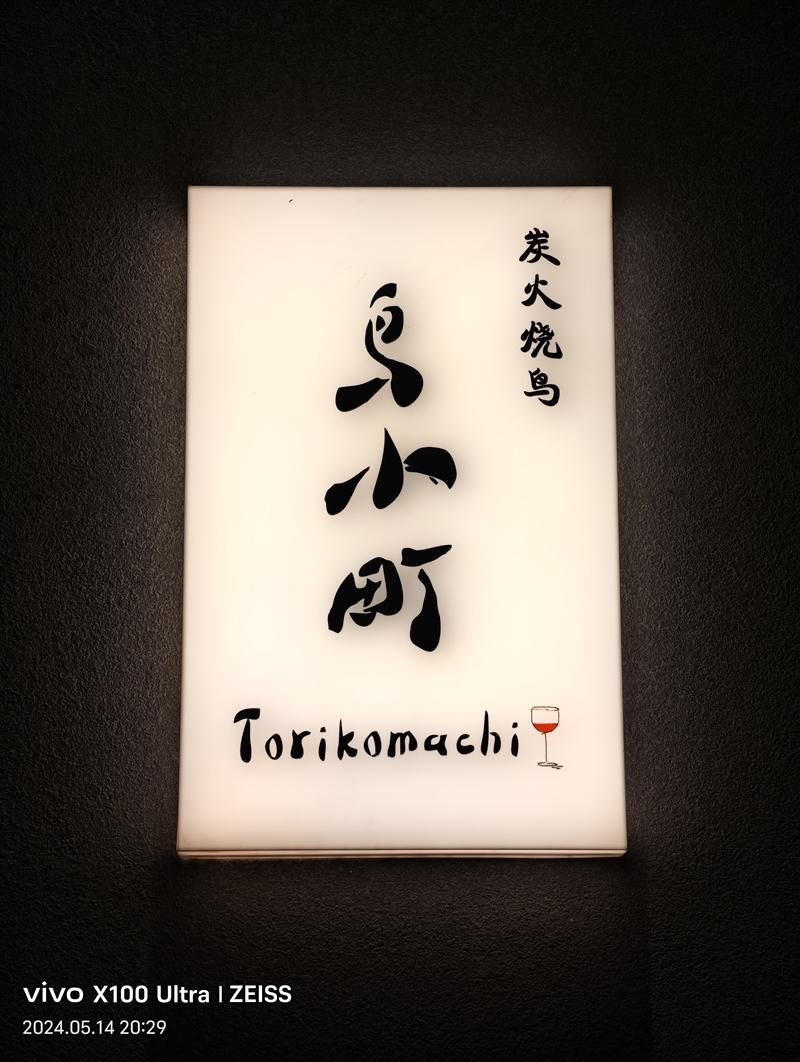 炭火烧鸟
鳥小町
Torikomachi
vivo X100 Ultra | ZEISS
2024.05.14 20:29